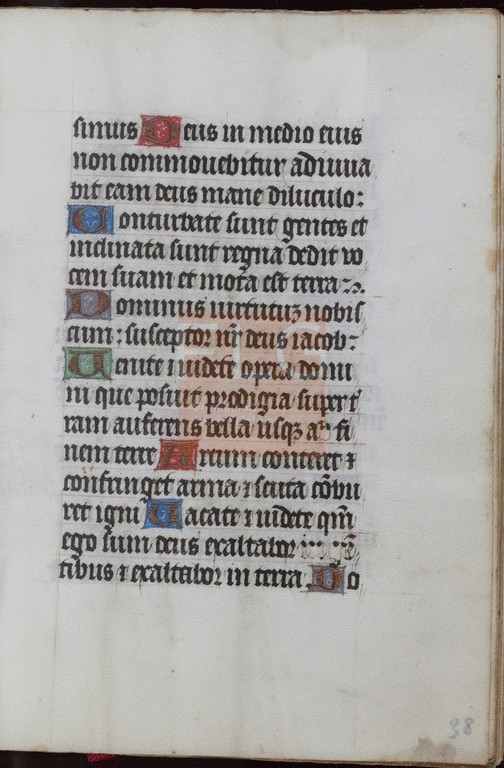 simus Deus in medio eius
non commouebitur adiuua
bit eam deus mane diluculo:
Conturbate sunt gentes et
inclinata sunt regna dedit vo
cem suam et mota est terra
Dominus uirtutuʒ nobis
cum: susceptor nr̄ deus iacob:
Uenite ⁊ uidete opera domi
ni que posuit prodigia super t̄
ram auferens bella usqʒ ad fi
nem terre Arcum conteret ⁊
confringet arma ⁊ scuta cōbu
ret igni Uacate ⁊ uidete qm̄
ego sum deus exaltabor in
tibus ⁊ exaltabor in terra Do
38